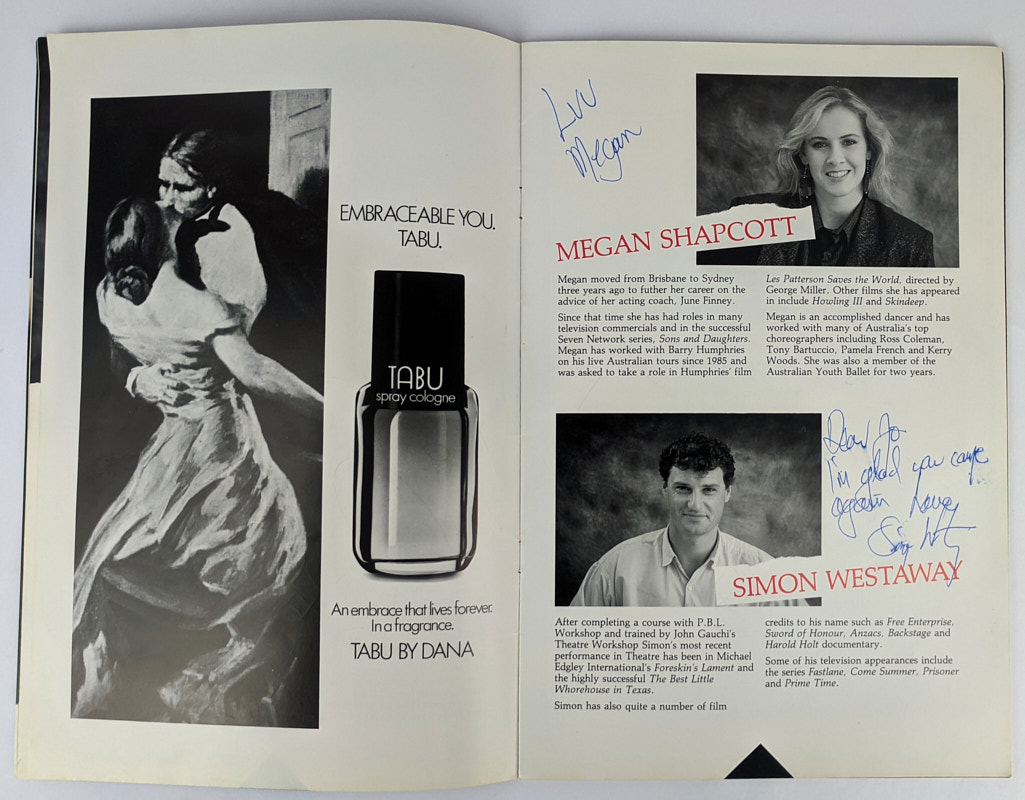 EMBRACEABLE YOU.
TABU.
TABU
spray cologne
An embrace that lives forever.
In a fragrance.
TABU BY DANA
Luv
Megan
MEGAN SHAPCOTT
Megan moved from Brisbane to Sydney
three years ago to futher her career on the
advice of her acting coach, June Finney.
Since that time she has had roles in many
television commercials and in the successful
Seven Network series, Sons and Daughters.
Megan has worked with Barry Humphries
on his live Australian tours since 1985 and
was asked to take a role in Humphries' film
Les Patterson Saves the World, directed by
George Miller. Other films she has appeared
in include Howling III and Skindeep.
Megan is an accomplished dancer and has
worked with many of Australia's top
choreographers including Ross Coleman,
Tony Bartuccio, Pamela French and Kerry
Woods. She was also a member of the
Australian Youth Ballet for two years.
Dear Jo
I'm glad you came
again Love
SIMON WESTAWAY
After completing a course with P.B.L.
Workshop and trained by John Gauchi's
Theatre Workshop Simon's most recent
performance in Theatre has been in Michael
Edgley International's Foreskin's Lament and
the highly successful The Best Little
Whorehouse in Texas.
Simon has also quite a number of film
credits to his name such as Free Enterprise,
Sword of Honour, Anzacs, Backstage and
Harold Holt documentary.
Some of his television appearances include
the series Fastlane, Come Summer, Prisoner
and Prime Time.